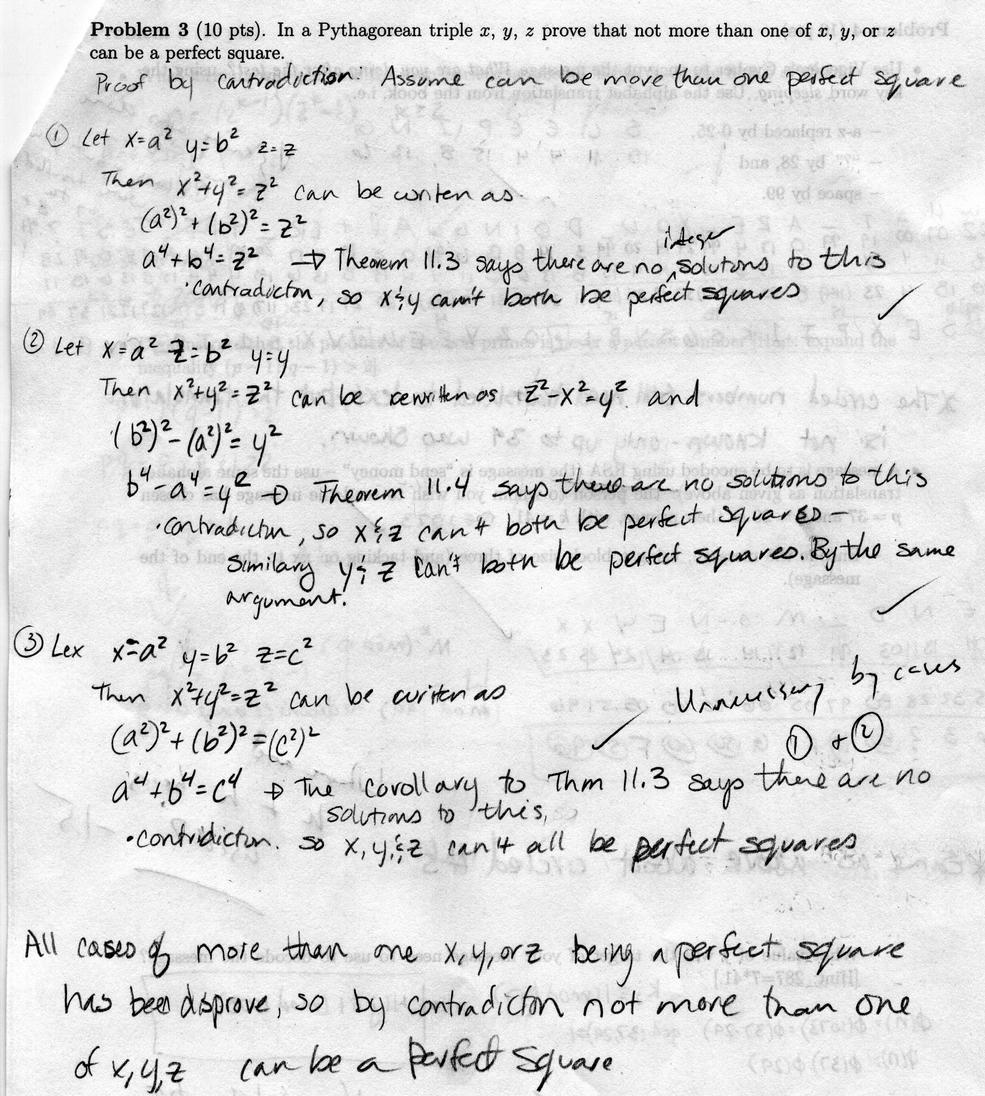 Problem 3 (10 pts). In a Pythagorean triple x, y, z prove that not more than one of x, y, or z
can be a perfect square.
Proof by contradiction. Assume can be more than one perfect square
① Let x=a² y=b² z=z
Then x²+y²=z² can be writen as
(a²)²+(b²)²=z²
integer
a⁴+b⁴=z² → Theorem 11.3 says there are no ^ solutions to this
·Contradicton, so x & y can't both be perfect squares ✓
② Let x=a² z=b² y=y
Then x²+y²=z² can be rewritten as z²-x²=y² and
(b²)²-(a²)²=y²
b⁴-a⁴=y² → Theorem 11.4 says there are no solutions to this
·contradictn, so x & z can't both be perfect squares –
Similary y & z can't both be perfect squares. By the same
argument. ✓
③ Lex x=a² y=b² z=c²
Then x²+y²=z² can be writen as
(a²)²+(b²)²=(c²)² ✓
Unnecessary by cases
① + ②
a⁴+b⁴=c⁴ → The Corollary to Thm 11.3 says there are no
solutions to this,
·contridicton. so x, y, & z can't all be perfect squares
All cases of more than one x, y, or z being a perfect square
has been disprove, so by contradicton not more than one
of x, y, z can be a perfect square.